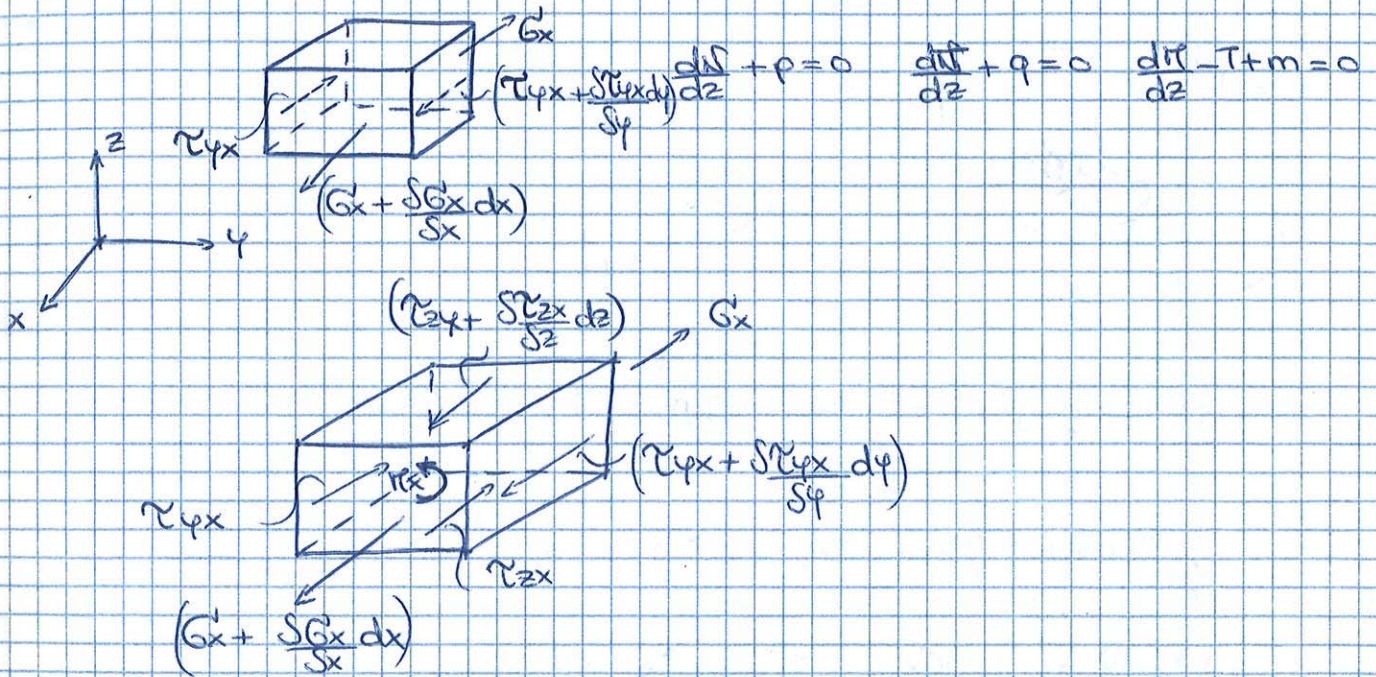 σx
(τyx + δτyx/δy dy) dN/dz + p = 0 dN/dz + q = 0 dM/dz - T + m = 0
τyx
z
(σx + δσx/δx dx)
y
x
(τzy + δτzx/δz dz) σx
Mx (τyx + δτyx/δy dy)
τyx
τzx
(σx + δσx/δx dx)